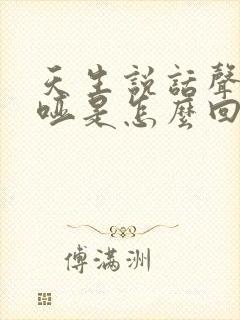 天生説話聲
啞是怎麼回
傅滿洲